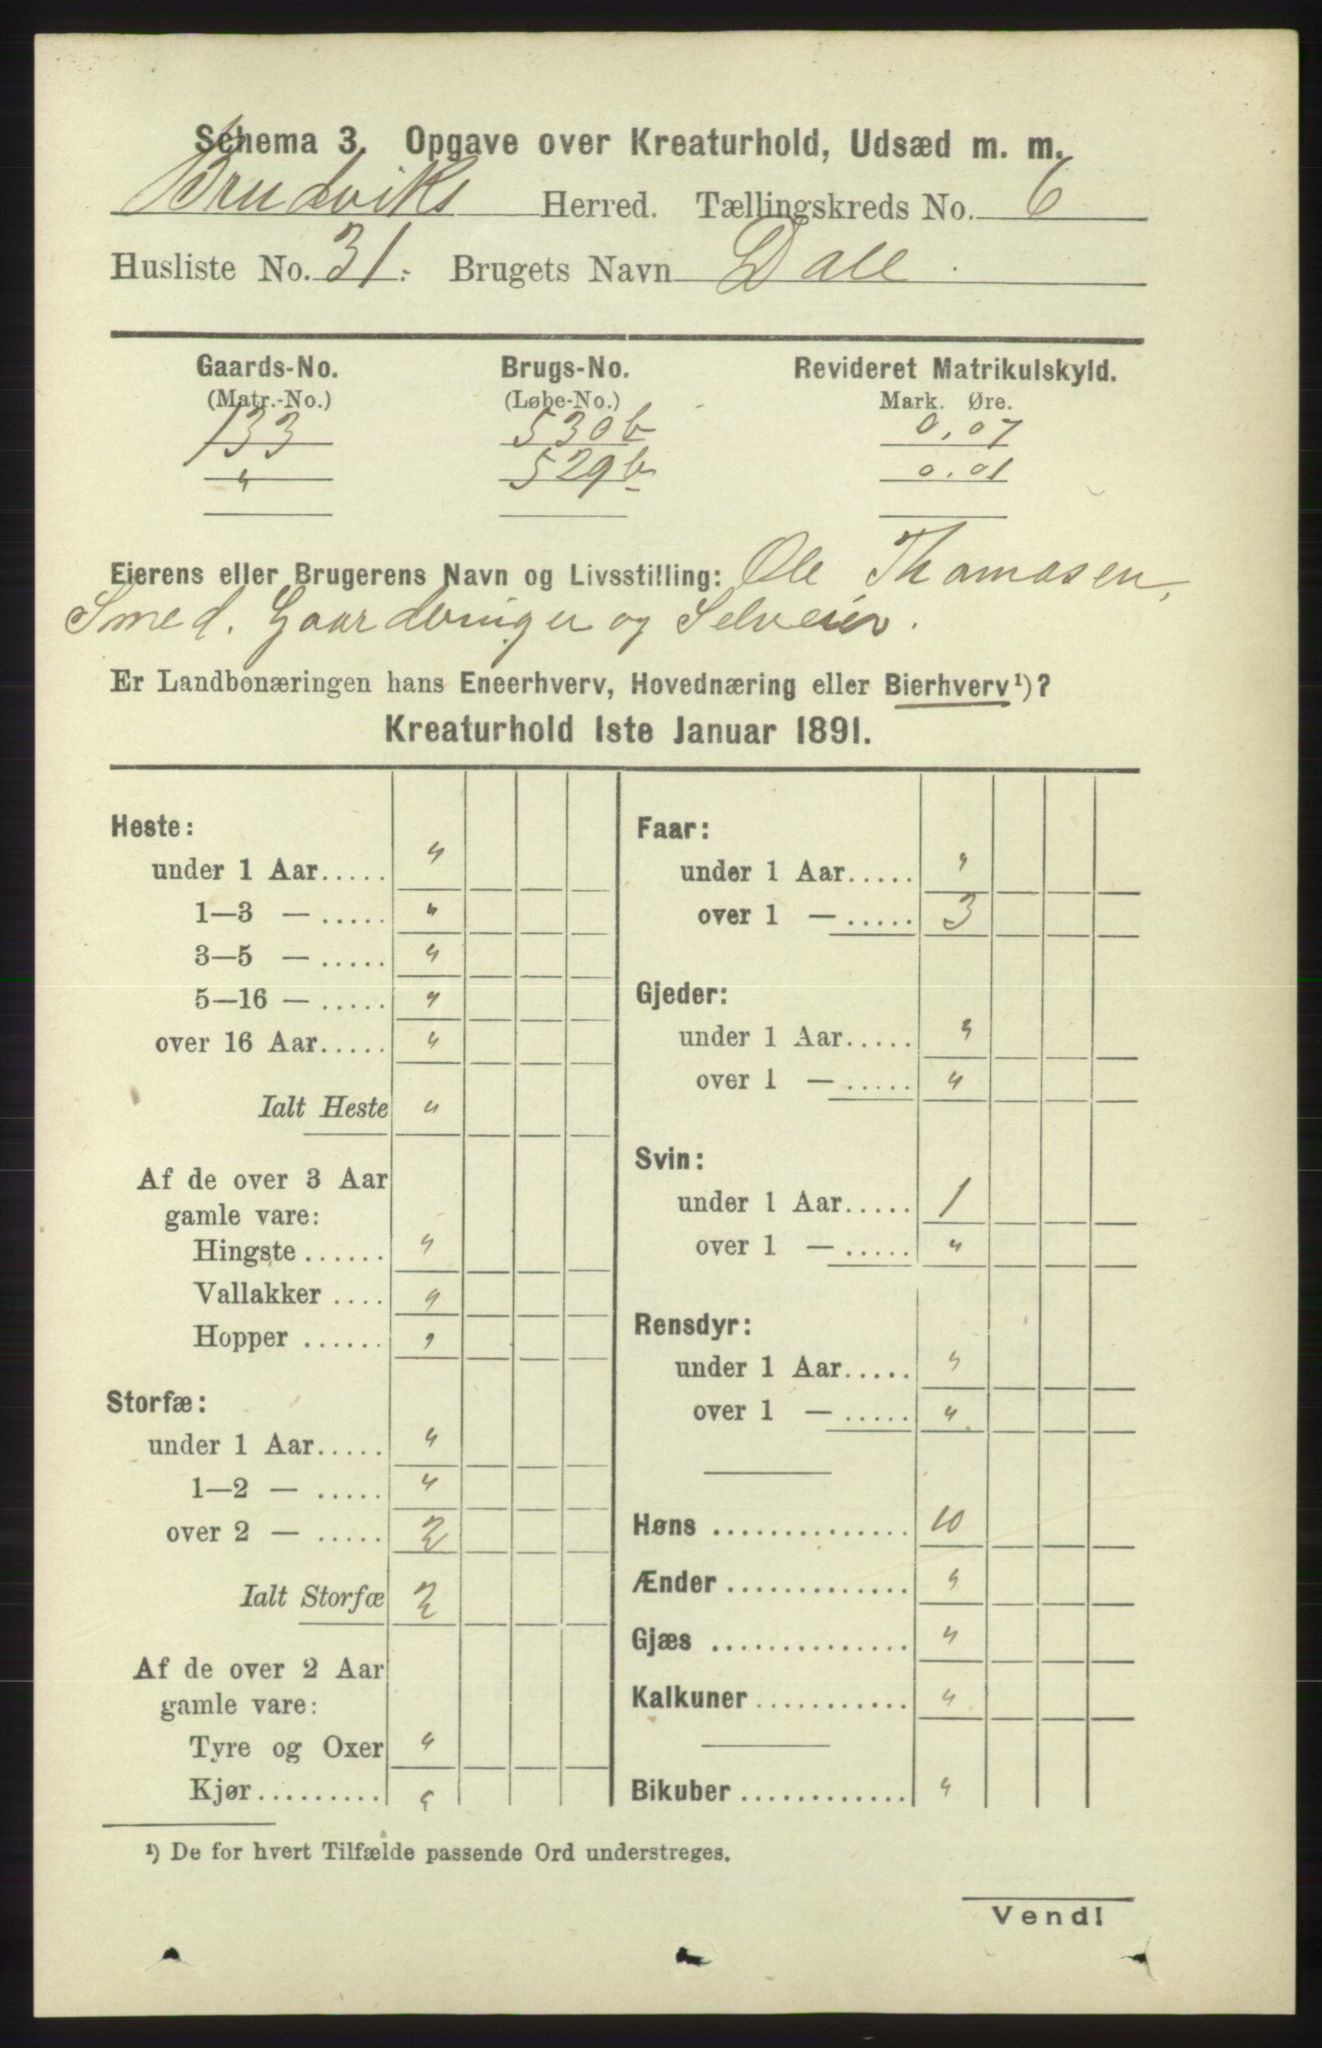 Schema 3. Opgave over Kreaturhold, Udsæd m. m.
Brudviks Herred. Tællingskreds No. 6
Husliste No. 31. Brugets Navn Dale.
Gaards-No. Brugs-No. Revideret Matrikulskyld.
(Matr.-No.) (Løbe-No.) Mark. Øre.
133 530b 0,07
" 529b 0.01
Eierens eller Brugerens Navn og Livsstilling: Ole Thomasen,
Smed. Gaardbruger og Selveier.
Er Landbonæringen hans Eneerhverv, Hovednæring eller Bierhverv¹)?
Kreaturhold 1ste Januar 1891.
Heste:
under 1 Aar..... "
1—3 — ..... "
3—5 — ..... "
5—16 — ..... "
over 16 Aar..... "
Ialt Heste "
Af de over 3 Aar
gamle vare:
Hingste...... "
Vallakker .... "
Hopper ...... "
Storfæ:
under 1 Aar..... "
1—2 — ..... "
over 2 — ..... 2
Ialt Storfæ 2
Af de over 2 Aar
gamle vare:
Tyre og Oxer "
Kjør......... "
Faar:
under 1 Aar..... "
over 1 — ..... 3
Gjeder:
under 1 Aar..... "
over 1 — ..... "
Svin:
under 1 Aar..... 1
over 1 — ..... "
Rensdyr:
under 1 Aar..... "
over 1 — ..... "
Høns .............. 10
Ænder ............. "
Gjæs .............. "
Kalkuner ........... "
Bikuber ............ "
¹) De for hvert Tilfælde passende Ord understreges.
Vend!